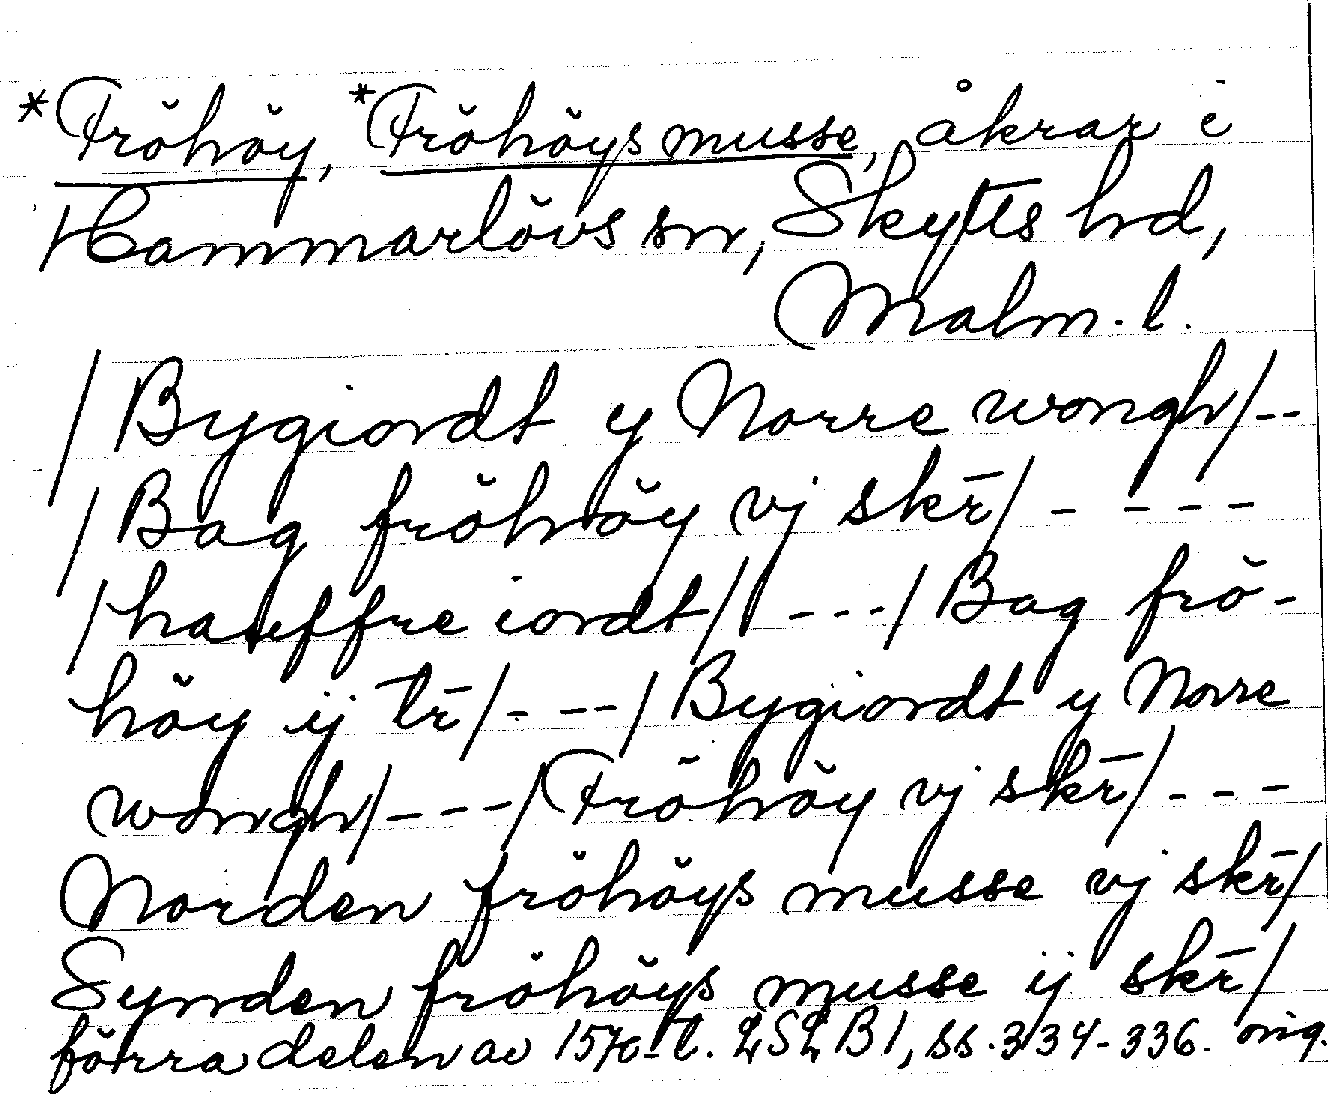 *Fröhöy, *Fröhöys musse, åkrar i
Hammarlövs sn, Skytts hd,
Malm. l.
/Bygiordt y Norre wongh/--
/Bag fröhöy vj skr̄/ - - - -
/hauffre iordt/ - - -/ Bag frö-
höy ij tr̄/- - -/ Bygiordt y Norre
wongh/- - -/ Fröhöy vj skr̄/ - - -
Norden fröhöys musse vj skr̄/
Synden fröhöys musse ij skr̄/
förra delen av 1570-t. LSLB1, ss. 334-336. orig.